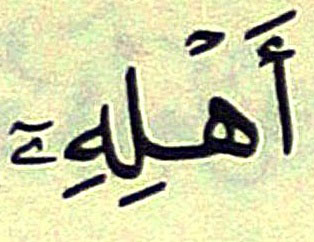 أَهْلِهِۦٓ